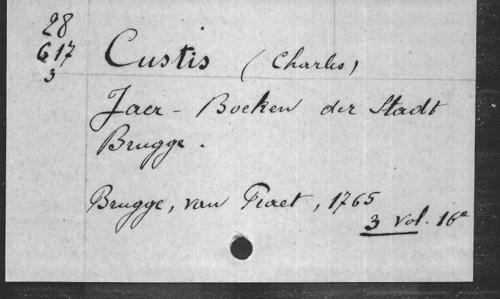 28
G 17
3
Custis (Charles)
Jaer-Boeken der Stadt
Brugge.
Brugge, van Praet, 1765
3 vol. 16°